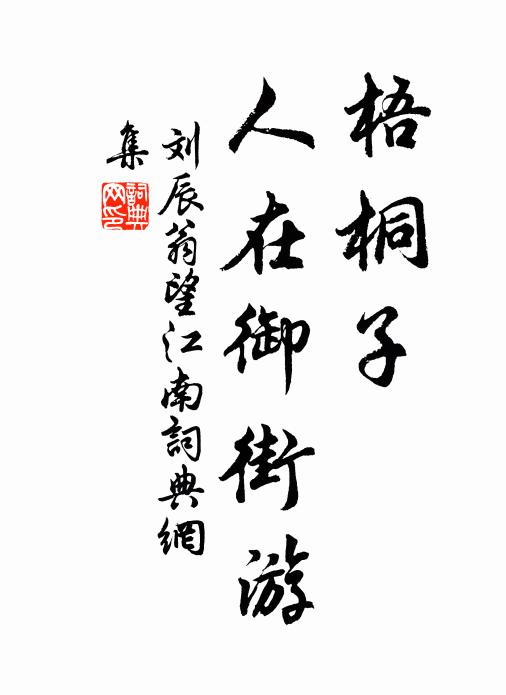 梧桐子
人在御街游
刘辰翁望江南詞典網
集
詞典网印